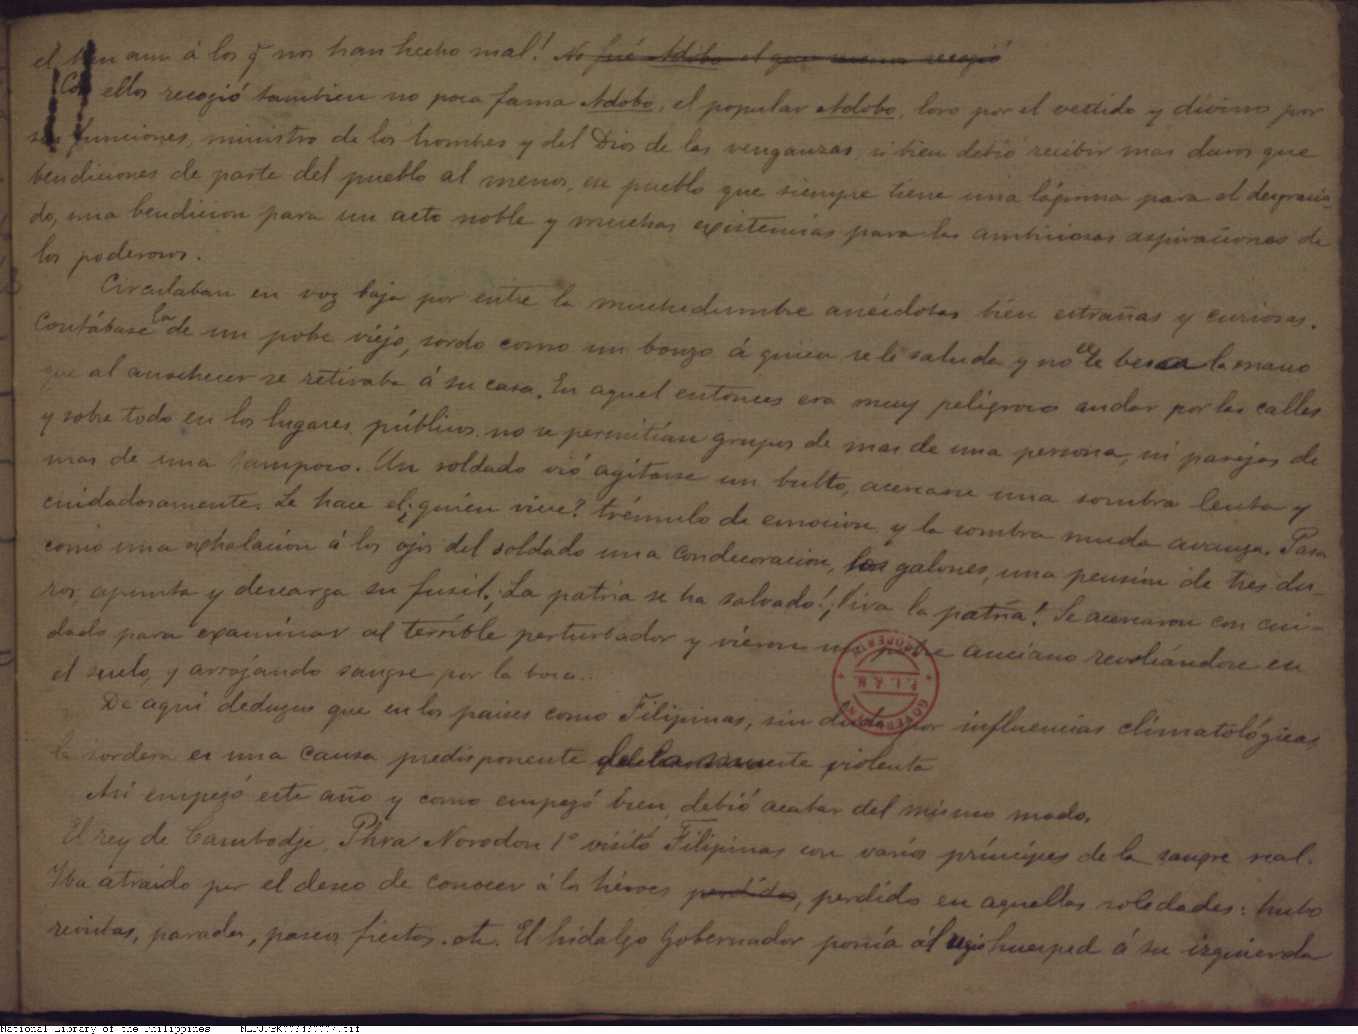 el bien aun á los q̃ nos han hecho mal! No fué Adobo el que menos recogió
Con ellos recogió tambien no poca fama Adobo, el popular Adobo, loro por el vestido y divino por
sus funciones, ministro de los hombres y del Dios de las venganzas, si bien debió recibir mas duros que
bendiciones de parte del pueblo al menos, ese pueblo que siempre tiene una lágrima para el desgracia-
do, una bendicion para un acto noble y muchas existencias para las ambiciosas aspiraciones de
los poderosos.
Circulaban en voz baja por entre la muchedumbre anécdotas bien estrañas y curiosas.
Contábase la de un pobre viejo, sordo como un bonzo á quien se le saluda y no se le besa la mano
que al anochecer se retiraba á su casa. En aquel entonces era muy peligroso andar por las calles
y sobre todo en los lugares públicos. no se permitían grupos de mas de una persona, ni parejas de
mas de una tampoco. Un soldado vió agitarse un bulto, acercarse una sombra lenta y
cuidadosamente. Le hace el ¿quién vive? trémulo de emocion y la sombra muda avanza. Pasa
como una exhalacion á los ojos del soldado una condecoracion, los galones, una pensión de tres du-
ros, apunta y descarga su fusil. ¡La patria se ha salvado! ¡Viva la patria! Se acercaron con cui-
dado para examinar al terrible perturbador y vieron un pobre anciano revolcándose en
el suelo, y arrojando sangre por la boca..
De aquí deduzco que en los paises como Filipinas, sin duda por influencias climatológicas,
la sordera es una causa predisponente de la muerte violenta
Así empezó este año y como empezó bien, debió acabar del mismo modo.
El rey de Cambodje, Phra Norodon 1º visitó Filipinas con varios príncipes de la sangre real.
Iba atraido por el deseo de conocer á los héroes perdidos, perdido en aquellas soledades: hubo
revistas, paradas, paseos, fiestas. etc. El hidalgo Gobernador ponía ál regio huesped á su izquierda
GOBERNADORCILLO
National Library of the Philippines